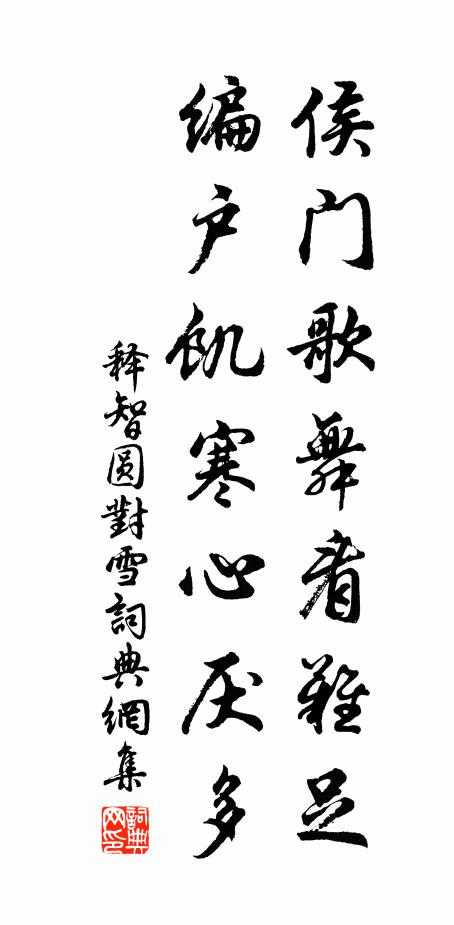 侯门歌舞看難足
编户飢寒心厌多
释智圆對雪詞典網集
詞典网印